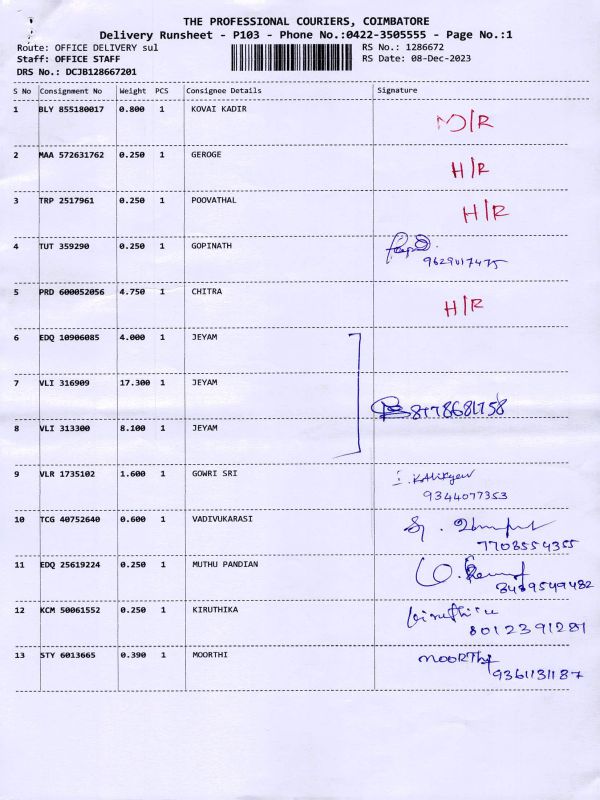 THE PROFESSIONAL COURIERS, COIMBATORE
Delivery Runsheet - P103 - Phone No.:0422-3505555 - Page No.:1
Route: OFFICE DELIVERY sul RS No.: 1286672
Staff: OFFICE STAFF RS Date: 08-Dec-2023
DRS No.: DCJB128667201
S No Consignment No Weight PCS Consignee Details Signature
1 BLY 855180017 0.800 1 KOVAI KADIR
2 MAA 572631762 0.250 1 GEROGE H/R
3 TRP 2517961 0.250 1 POOVATHAL H/R
4 TUT 359290 0.250 1 GOPINATH
9629017475
5 PRD 600052056 4.750 1 CHITRA H/R
6 EDQ 10906085 4.000 1 JEYAM
7 VLI 316909 17.300 1 JEYAM
8778681758
8 VLI 313300 8.100 1 JEYAM
9 VLR 1735102 1.600 1 GOWRI SRI
9344077353
10 TCG 40752640 0.600 1 VADIVUKARASI
7708554355
11 EDQ 25619224 0.250 1 MUTHU PANDIAN
8489549482
12 KCM 50061552 0.250 1 KIRUTHIKA
8012391281
13 STY 6013665 0.390 1 MOORTHI MOORTHY
9361131187